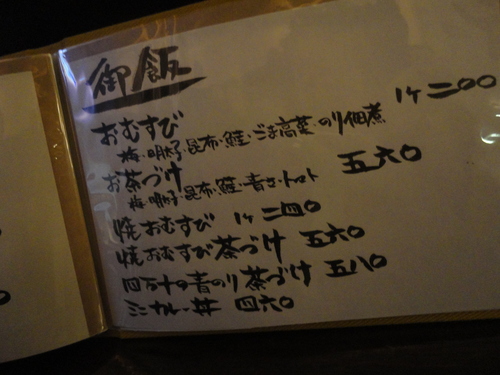 御飯
おむすび 1ケ 二〇〇
梅・明太子・昆布・鮭・ごま高菜・のり佃煮
お茶づけ 五六〇
梅・明太子・昆布・鮭・青さ・トマト
焼おむすび 1ケ 二四〇
焼おむすび茶づけ 五六〇
四万十の青のり茶づけ 五八〇
ミニカレー丼 四六〇